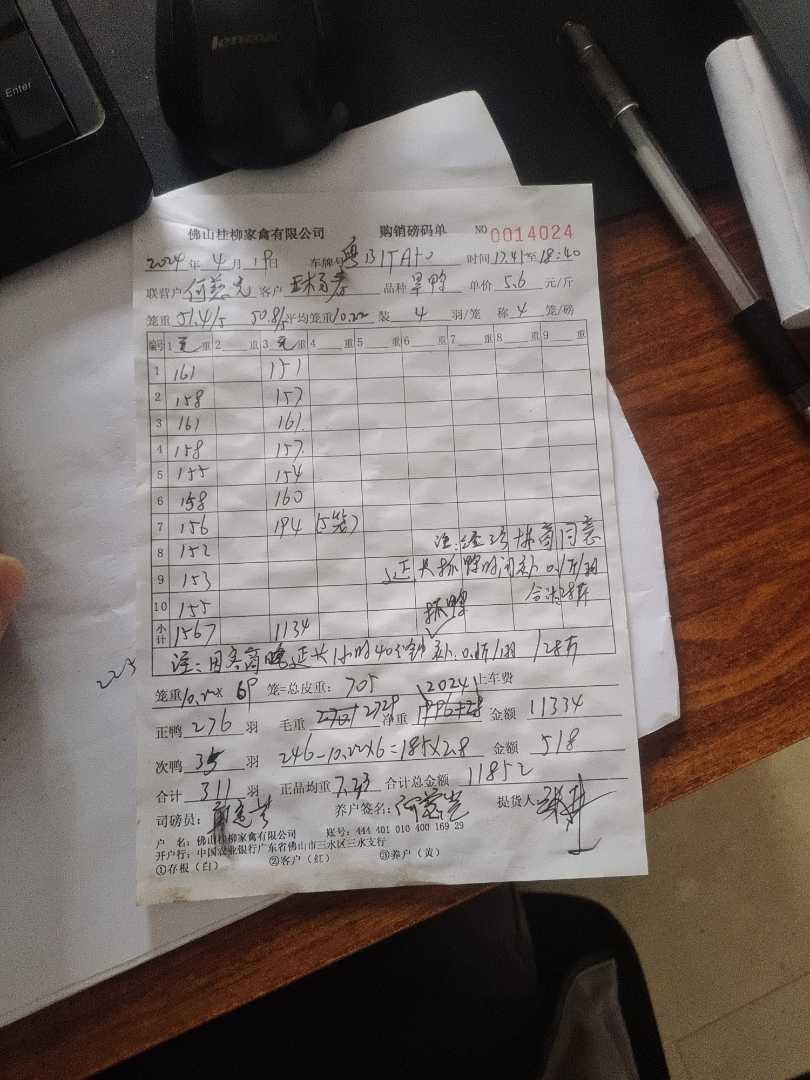 Enter
lenovo
佛山桂柳家禽有限公司 购销磅码单 NO 0014024
2024 年 4 月 19 日 车牌号 粤 时间 17.41 至 18:40
联营户 客户 品种 旱鸭 单价 5.6 元/斤
笼重 51.4/5 50.8/5 平均笼重 10.22 装 4 羽/笼 称 4 笼/磅
编号 1 毛 重 2 重 3 毛 重 4 重 5 重 6 重 7 重 8 重 9 重
1 161 151
2 158 157
3 161 161
4 158 157
5 155 154
6 158 160
7 156 194 (5笼)
8 152 注:经 同意
9 153 延长抓鸭时间补 0.1斤/羽
10 155 抓鸭 合计28斤
小计 1567 1134
注:因客商 延长1小时40分钟补:0.1斤/羽 /28斤
笼重 10.22 × 69 笼=总皮重: 705 2024 上车费
正鸭 276 羽 毛重 2729 净重 金额 11334
次鸭 35 羽 246-10.22×6=185×2.8 金额 518
合计 311 羽 正品均重 7.33 合计总金额 11852
司磅员: 养户签名: 提货人
户 名:佛山桂柳家禽有限公司 账号:444 401 010 400 169 29
开户行:中国农业银行广东省佛山市三水区三水支行
①存根(白) ②客户(红) ③养户(黄)